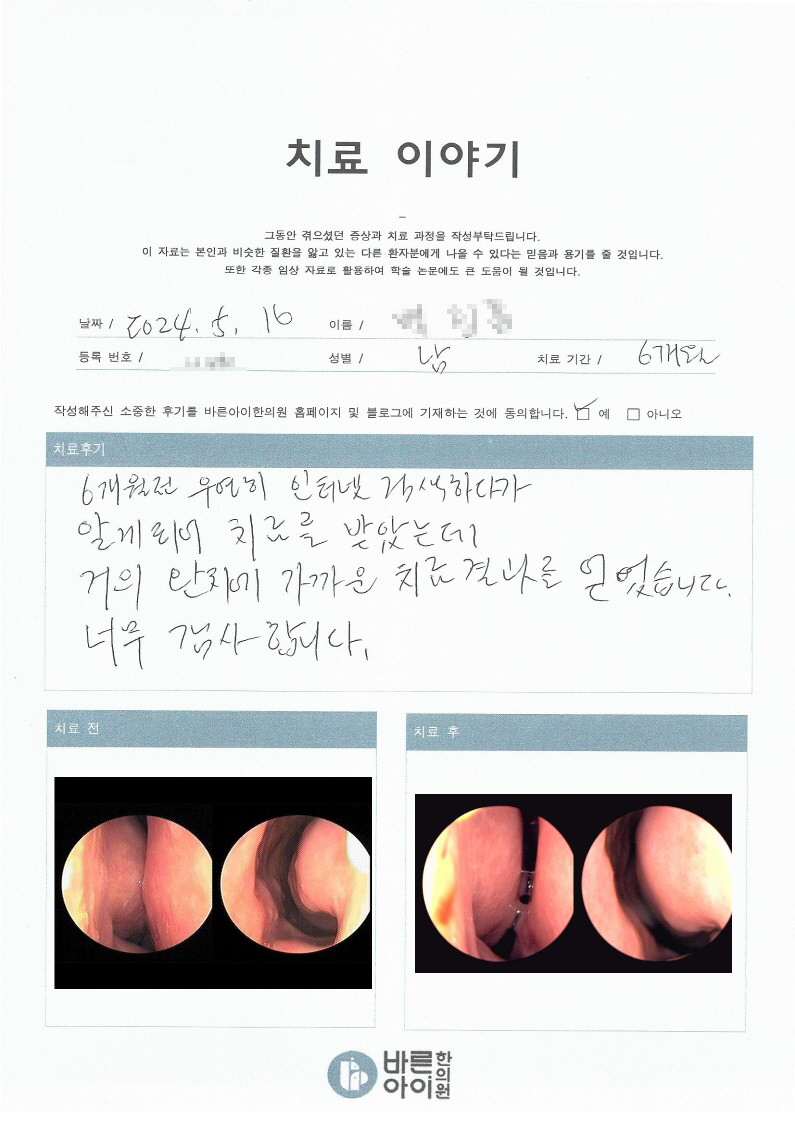 치료 이야기
그동안 겪으셨던 증상과 치료 과정을 작성부탁드립니다.
이 자료는 본인과 비슷한 질환을 앓고 있는 다른 환자분에게 나을 수 있다는 믿음과 용기를 줄 것입니다.
또한 각종 임상 자료로 활용하여 학술 논문에도 큰 도움이 될 것입니다.
날짜 / 2024. 5. 16 이름 /
등록 번호 / 성별 / 남 치료 기간 / 6개월
작성해주신 소중한 후기를 바른아이한의원 홈페이지 및 블로그에 기재하는 것에 동의합니다. ☑ 예 □ 아니오
치료후기
6개월전 우연히 인터넷 검색하다가
알게되어 치료를 받았는데
거의 완치에 가까운 치료결과를 얻었습니다.
너무 감사합니다.
치료 전
치료 후
바른아이한의원